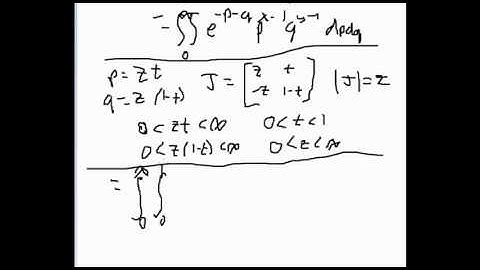 = ∫∫₀^∞ e^{-p-q} p^{x-1} q^{y-1} dpdq
p = zt
q = z(1-t)
J = [z t
-z 1-t] |J| = z
0 < zt < ∞ 0 < t < 1
0 < z(1-t) < ∞ 0 < z < ∞
= ∫₀^∞ ∫₀^1